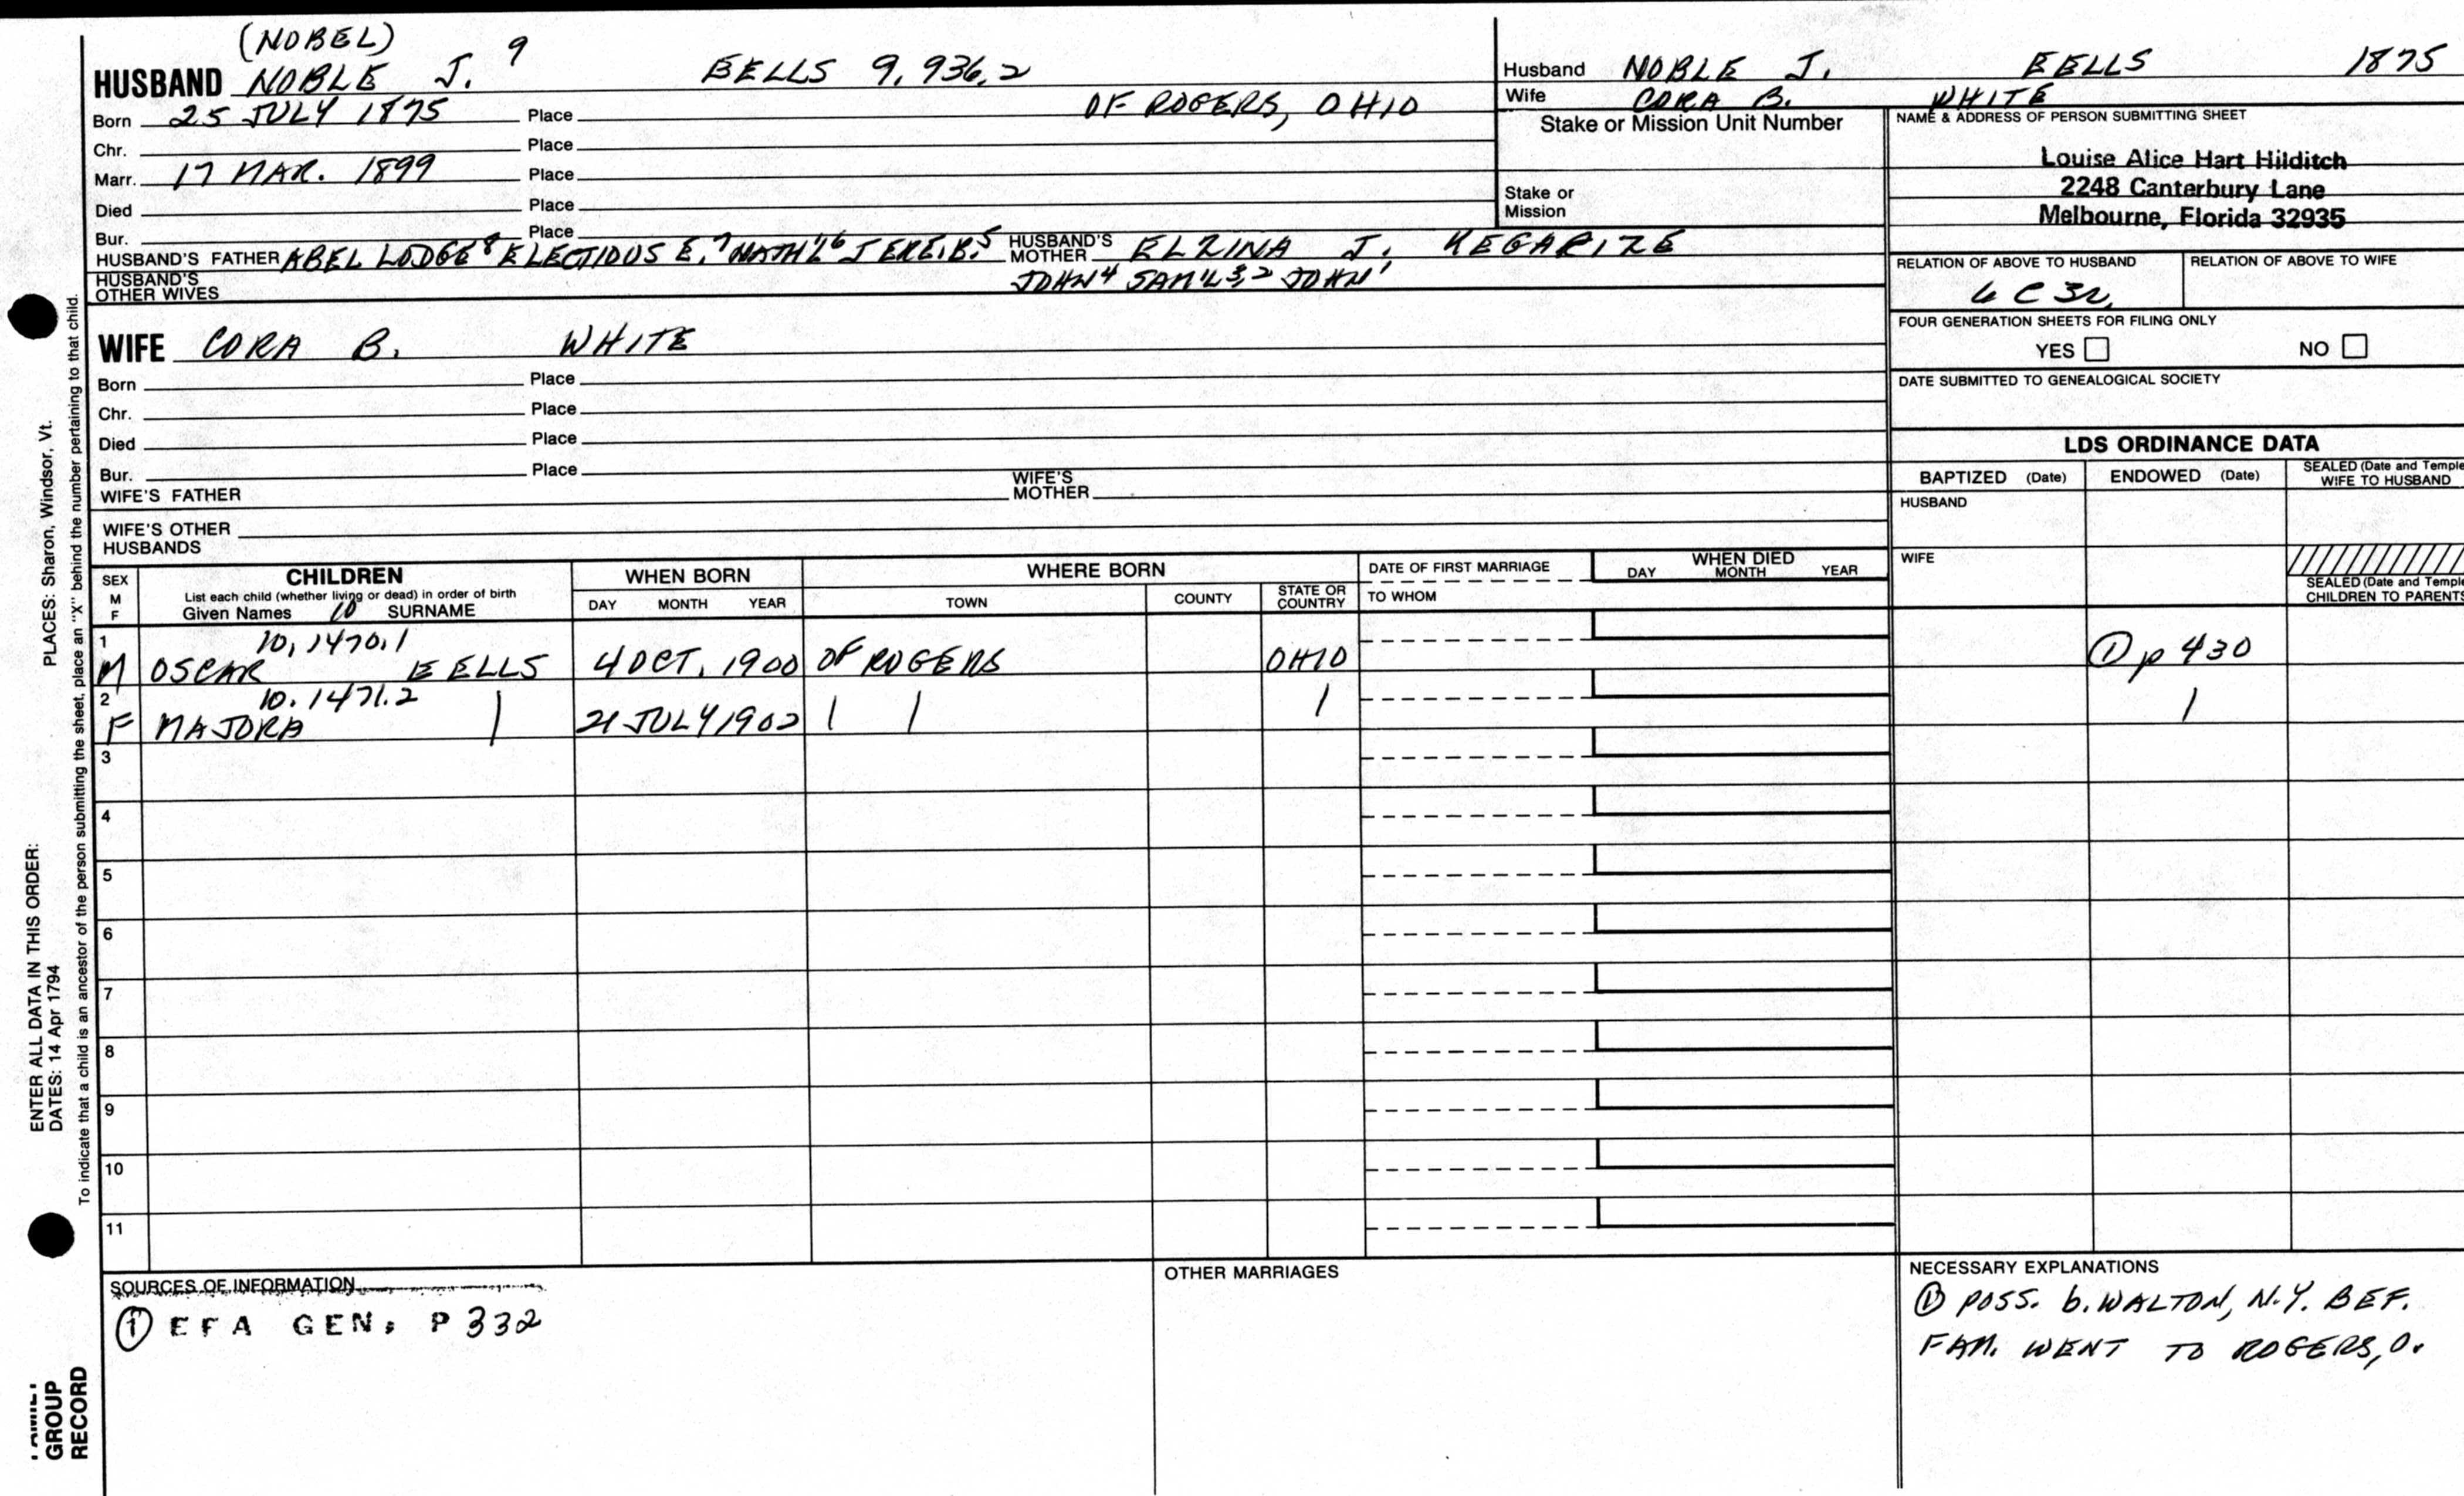 (NOBEL)
HUSBAND NOBLE J. 9 EELLS 9,936.2
Born 25 JULY 1875 Place OF ROGERS, OHIO
Chr. Place
Marr. 17 MAR. 1899 Place
Died Place
Bur. Place
HUSBAND'S FATHER ABEL LODGE 8 ELECTIOUS E. 7 NATH'L 6 JERE. B. 5 HUSBAND'S MOTHER ELZINA J. KEGARIZE
HUSBAND'S OTHER WIVES JOHN 4 SAM'L 3, 2 JOHN 1
WIFE CORA B. WHITE
Born Place
Chr. Place
Died Place
Bur. Place
WIFE'S FATHER WIFE'S MOTHER
WIFE'S OTHER HUSBANDS
Husband NOBLE J. EELLS 1875
Wife CORA B. WHITE
Stake or Mission Unit Number
Stake or
Mission
NAME & ADDRESS OF PERSON SUBMITTING SHEET
Louise Alice Hart Hilditch
2248 Canterbury Lane
Melbourne, Florida 32935
RELATION OF ABOVE TO HUSBAND RELATION OF ABOVE TO WIFE
6 C 3R
FOUR GENERATION SHEETS FOR FILING ONLY
YES NO
DATE SUBMITTED TO GENEALOGICAL SOCIETY
LDS ORDINANCE DATA
BAPTIZED (Date) ENDOWED (Date) SEALED (Date and Temple
WIFE TO HUSBAND
HUSBAND
WIFE
SEALED (Date and Temple
CHILDREN TO PARENTS
SEX
M
F
CHILDREN
List each child (whether living or dead) in order of birth
Given Names 10 SURNAME
WHEN BORN
DAY MONTH YEAR
WHERE BORN
TOWN COUNTY STATE OR COUNTRY
DATE OF FIRST MARRIAGE
TO WHOM
WHEN DIED
DAY MONTH YEAR
1 10,1470.1
M OSCAR EELLS 4 OCT. 1900 OF ROGERS OHIO ① p 430
2 10.1471.2
F MAJORA 21 JULY 1902
3
4
5
6
7
8
9
10
11
SOURCES OF INFORMATION
① EFA GEN; P 332
OTHER MARRIAGES
NECESSARY EXPLANATIONS
① POSS. b. WALTON, N.Y. BEF.
FAM. WENT TO ROGERS, O.
PLACES: Sharon, Windsor, Vt.
ENTER ALL DATA IN THIS ORDER:
DATES: 14 Apr 1794
To indicate that a child is an ancestor of the person submitting the sheet, place an "X" behind the number pertaining to that child.
GROUP
RECORD